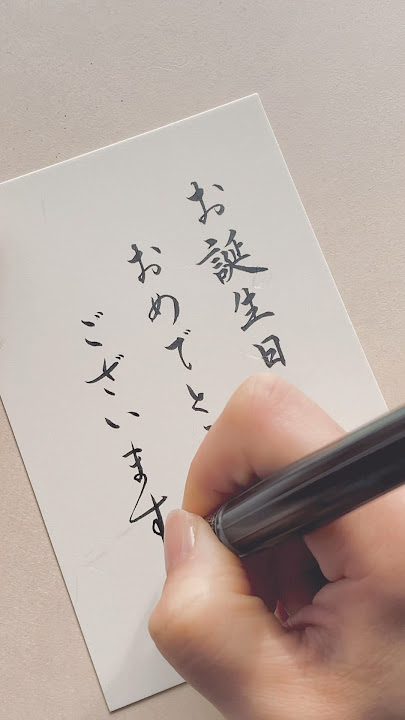 お誕生日
おめでと
ございます